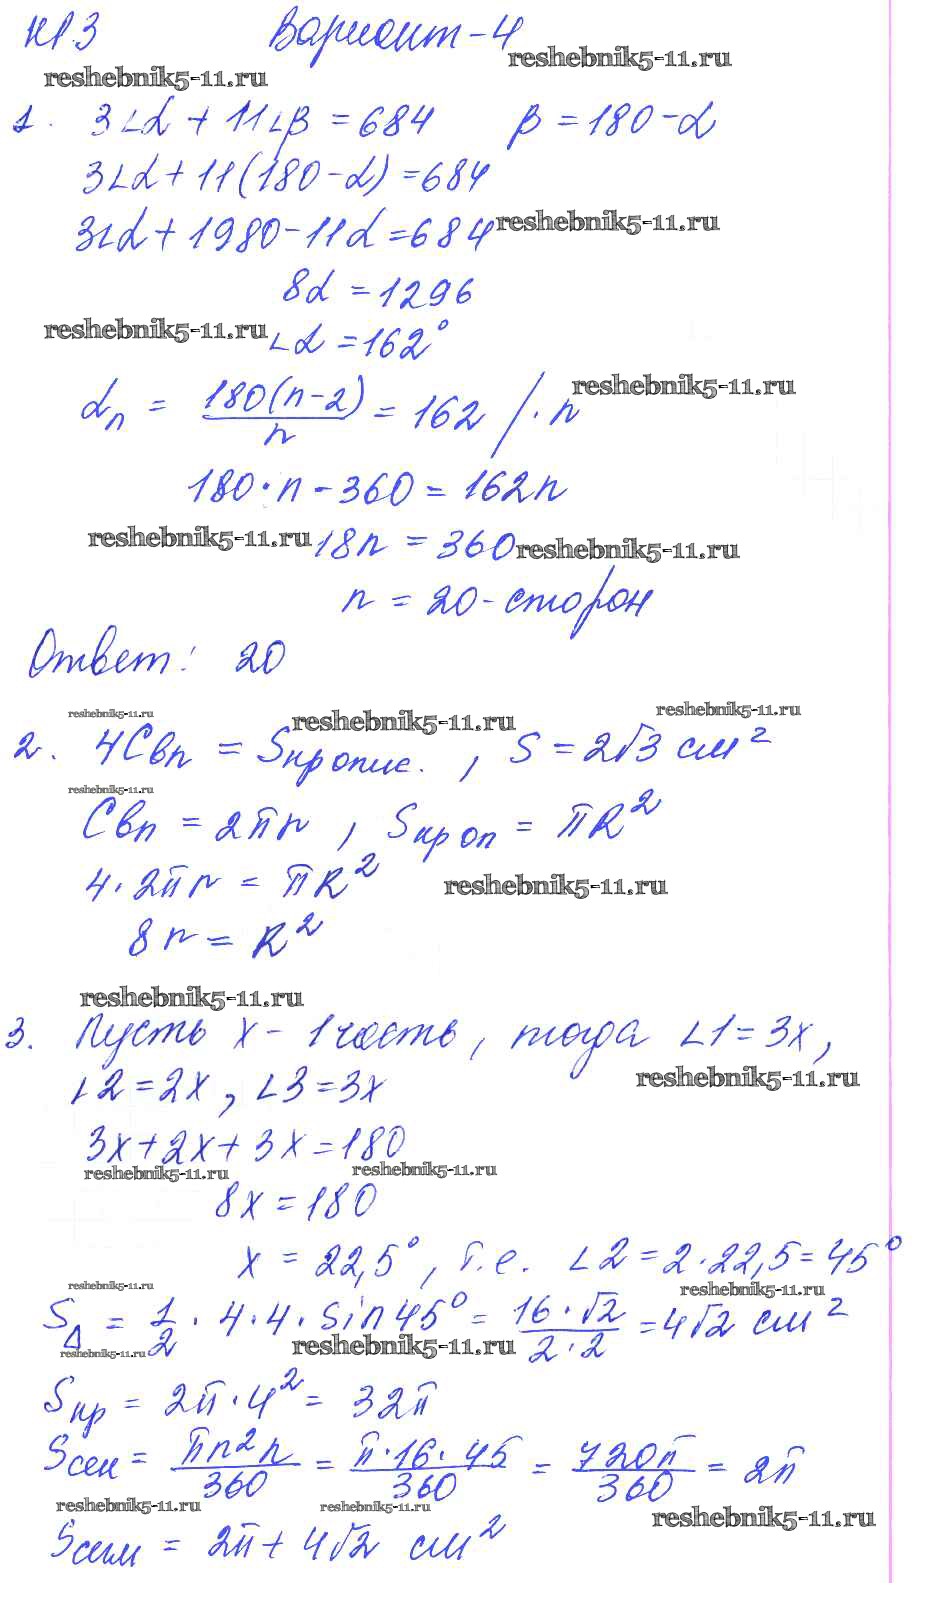 КР.3 Вариант-4
reshebnik5-11.ru
reshebnik5-11.ru
1. 3∠α + 11∠β = 684 β = 180 - α
3∠α + 11(180 - α) = 684
3∠α + 1980 - 11α = 684 reshebnik5-11.ru
8α = 1296
reshebnik5-11.ru ∠α = 162°
αn = 180(n-2)/n = 162 /·n reshebnik5-11.ru
180·n - 360 = 162n
reshebnik5-11.ru 18n = 360 reshebnik5-11.ru
n = 20 - сторон
Ответ: 20
reshebnik5-11.ru reshebnik5-11.ru reshebnik5-11.ru
2. 4Cвп = Sкропис. , S = 2√3 см²
reshebnik5-11.ru
Cвп = 2πr , Sкроп = πR²
4·2πr = πR² reshebnik5-11.ru
8r = R²
reshebnik5-11.ru
3. Пусть x - 1 часть, тогда ∠1 = 3x,
reshebnik5-11.ru
∠2 = 2x, ∠3 = 3x
3x + 2x + 3x = 180
reshebnik5-11.ru reshebnik5-11.ru
8x = 180
x = 22,5°, т.е. ∠2 = 2·22,5 = 45°
reshebnik5-11.ru reshebnik5-11.ru
S∆ = 1/2 · 4·4· sin45° = 16·√2/2·2 = 4√2 см²
reshebnik5-11.ru reshebnik5-11.ru
Sкр = 2π·4² = 32π
Sсек = πn²n/360 = π·16·45/360 = 720π/360 = 2π
reshebnik5-11.ru reshebnik5-11.ru reshebnik5-11.ru
Sсегм = 2π + 4√2 см²